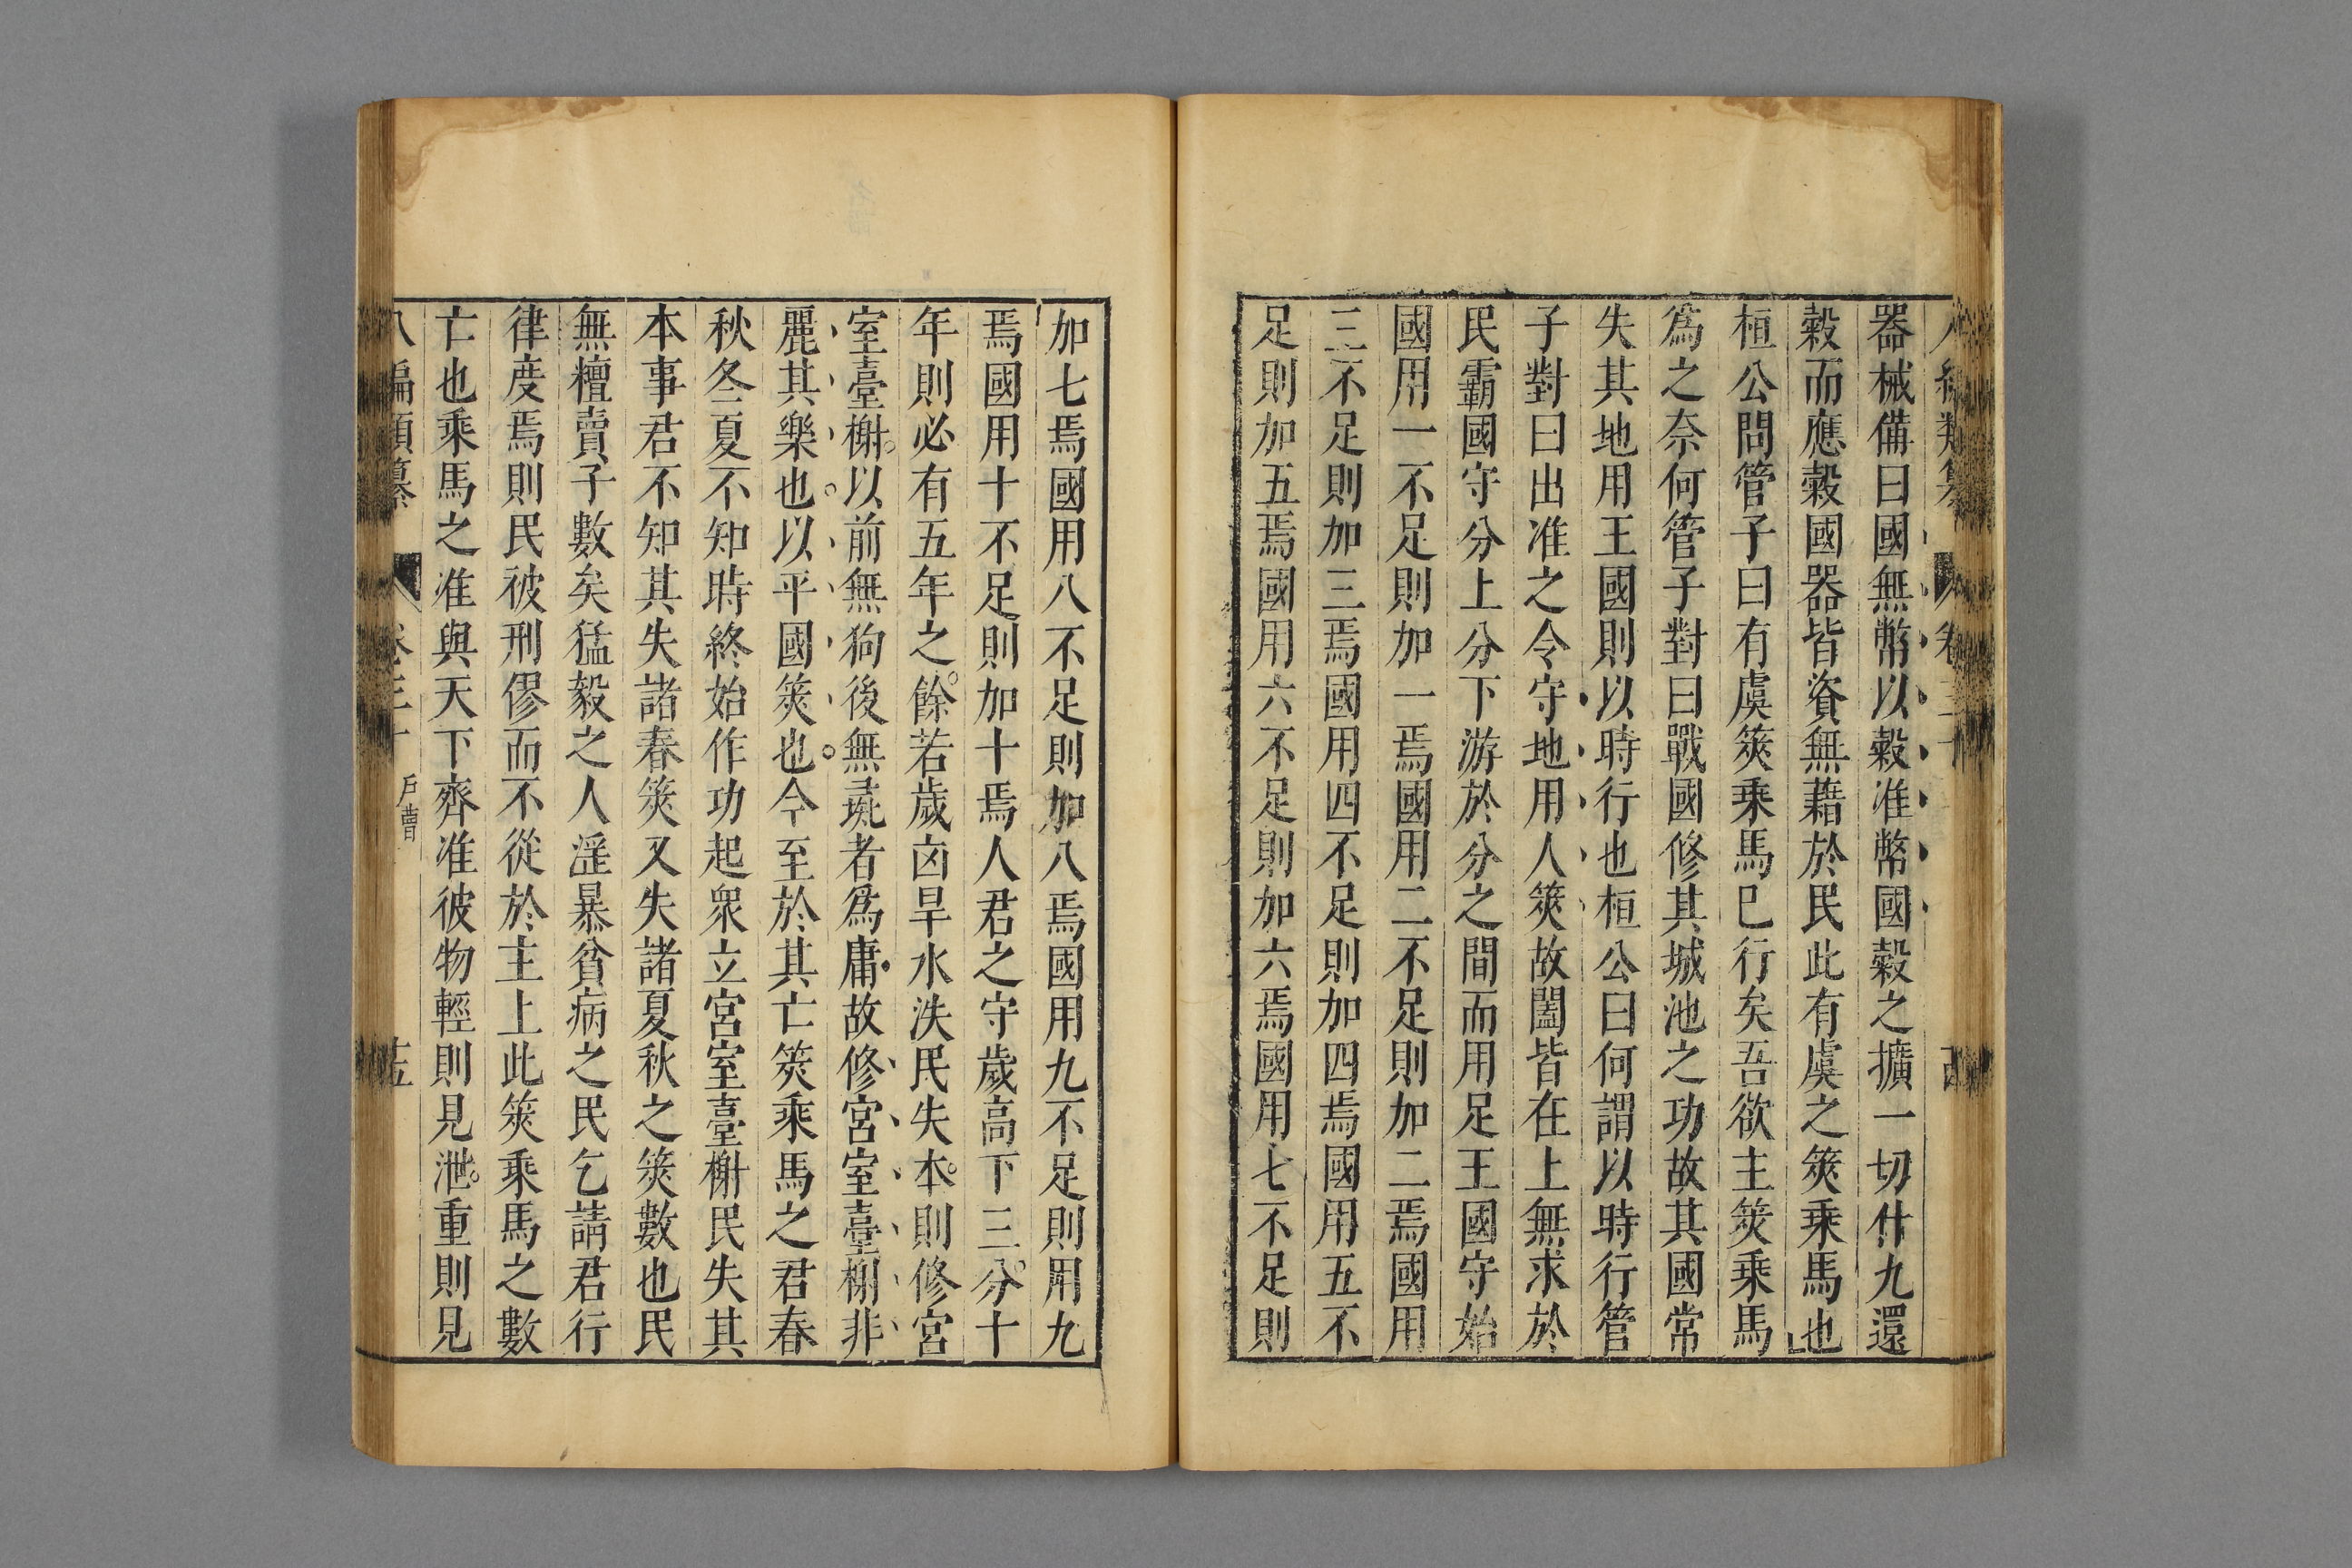 器械備曰國無幣以穀准幣國穀之擴一切什九還
穀而應穀國器皆資無藉於民此有虞之筴乘馬也
桓公問管子曰有虞筴乘馬已行矣吾欲主筴乘馬
爲之奈何管子對曰戰國修其城池之功故其國常
失其地用王國則以時行也桓公曰何謂以時行管
子對曰出准之令守地用人筴故闔皆在上無求於
民霸國守分上分下游於分之間而用足王國守始
國用一不足則加一焉國用二不足則加二焉國用
三不足則加三焉國用四不足則加四焉國用五不
足則加五焉國用六不足則加六焉國用七不足則
加七焉國用八不足則加八焉國用九不足則用九
焉國用十不足則加十焉人君之守歲高下三分十
年則必有五年之餘若歲凶旱水泆民失本則修宮
室臺榭以前無狗後無彘者爲庸故修宮室臺榭非
麗其樂也以平國筴也今至於其亡筴乘馬之君春
秋冬夏不知時終始作功起衆立宮室臺榭民失其
本事君不知其失諸春筴又失諸夏秋之筴數也民
無糟賣子數矣猛毅之人淫暴貧病之民乞請君行
律度焉則民彼刑僇而不從於主上此筴乘馬之數
亡也乘馬之准與天下齊准彼物輕則見泄重則見
八編類纂 卷三十 戶曹 十五